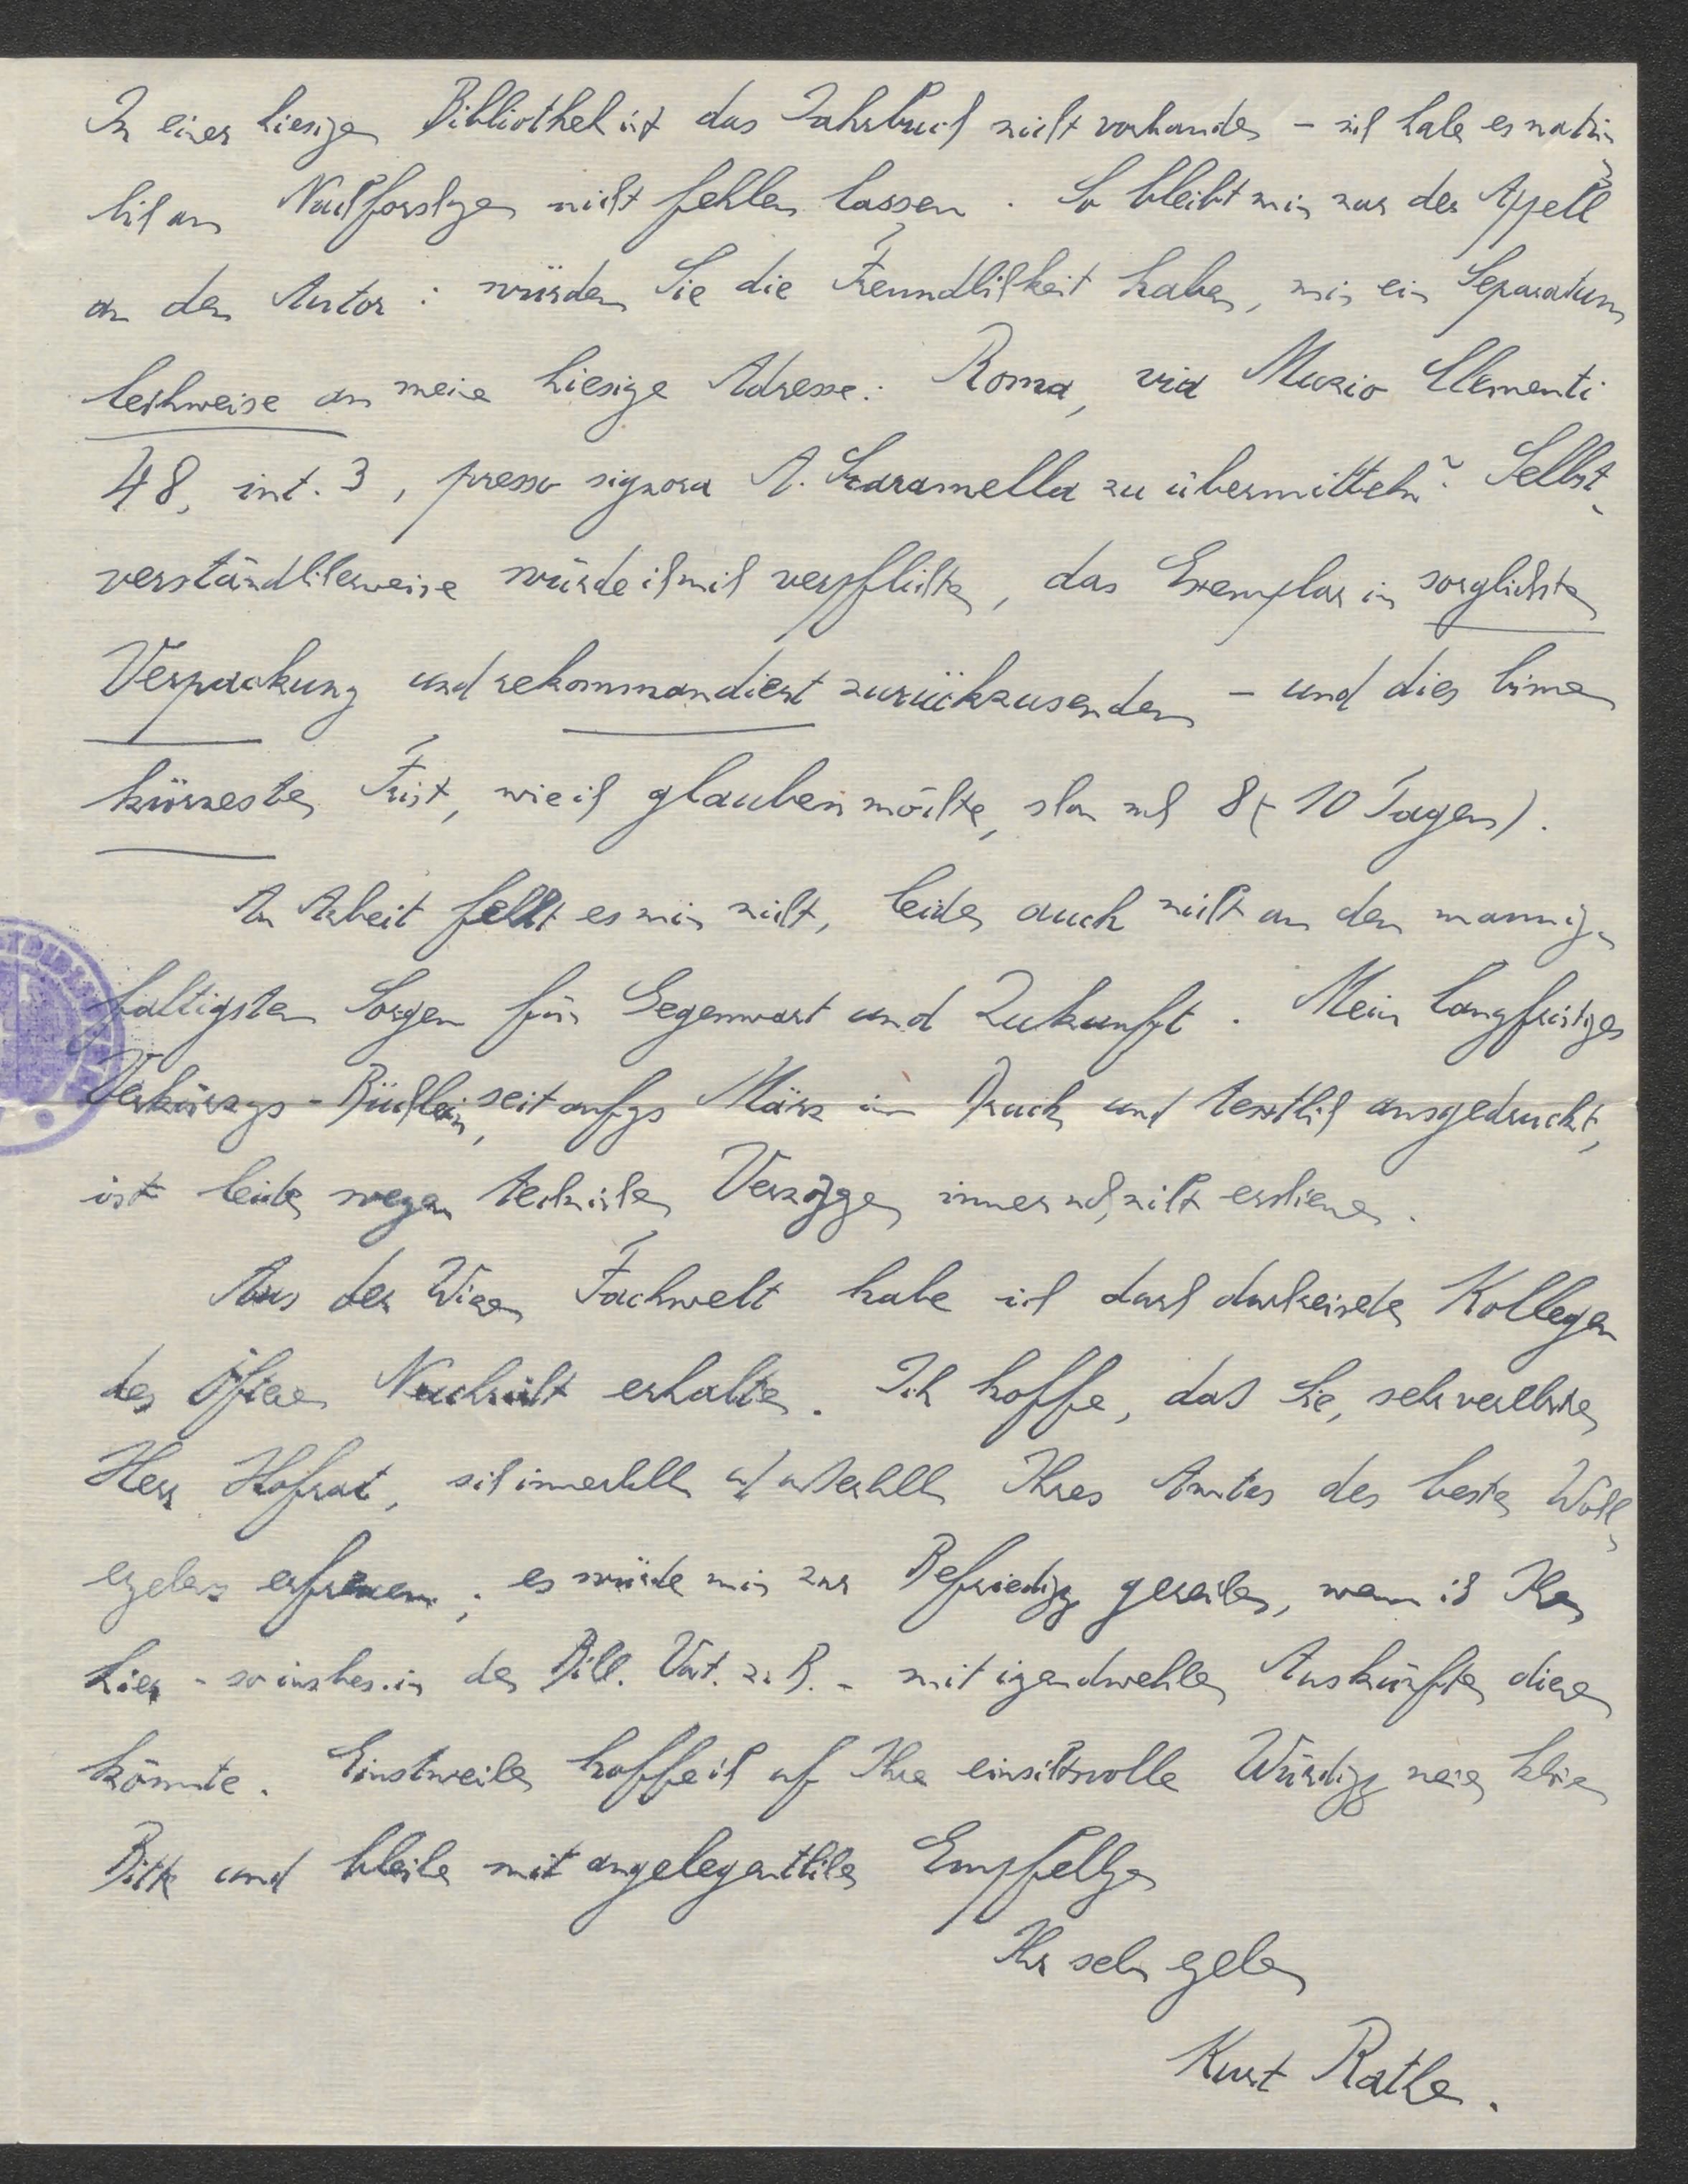 In einer hiesigen Bibliothek ist das Jahrbuch nicht vorhanden – ich habe es natür-
lich an Nachforschgen nicht fehlen lassen. So bleibt mir nur der Appell
an den Autor: würden Sie die Freundlichkeit haben, mir ein Separatum
leihweise an meine hiesige Adresse: Roma, via Muzio Clementi
48, int. 3, presso signora A. Scaramella zu übermitteln? Selbst-
verständlicherweise würde ich mich verpflichten, das Exemplar in sorglichster
Verpackung und rekommandiert zurückzusenden – und dies binnen
kürzester Frist, wie ich glauben möchte, schon nach 8(-10 Tagen).
An Arbeit fehlt es mir nicht, leider auch nicht an den mannig-
faltigsten Sorgen für Gegenwart und Zukunft. Mein langfristiges
Verkürzgs-Büchlein, seit anfgs März im Druck und textlich ausgedruckt,
ist leider wegen technischer Verzöggen immer noch nicht erschienen.
Aus der Wiener Fachwelt habe ich durch durchreisende Kollegen
des öfteren Nachricht erhalten. Ich hoffe, daß Sie, sehr verehrter
Herr Hofrat, sich innerhalb u/ außerhalb Ihres Amtes des besten Wohl-
ergehens erfreuen; es würde mir zur Befriedigg gereichen, wenn ich Ihnen
hier – so insbes. in der Bibl. Vat. z. B. – mit irgendwelchen Auskünften dienen
könnte. Einstweilen hoffe ich auf Ihre einsichtsvolle Würdigg meiner kleinen
Bitte und bleibe mit angelegentlichen Empfehlgen
Ihr sehr ergebener
Kurt Rathe.